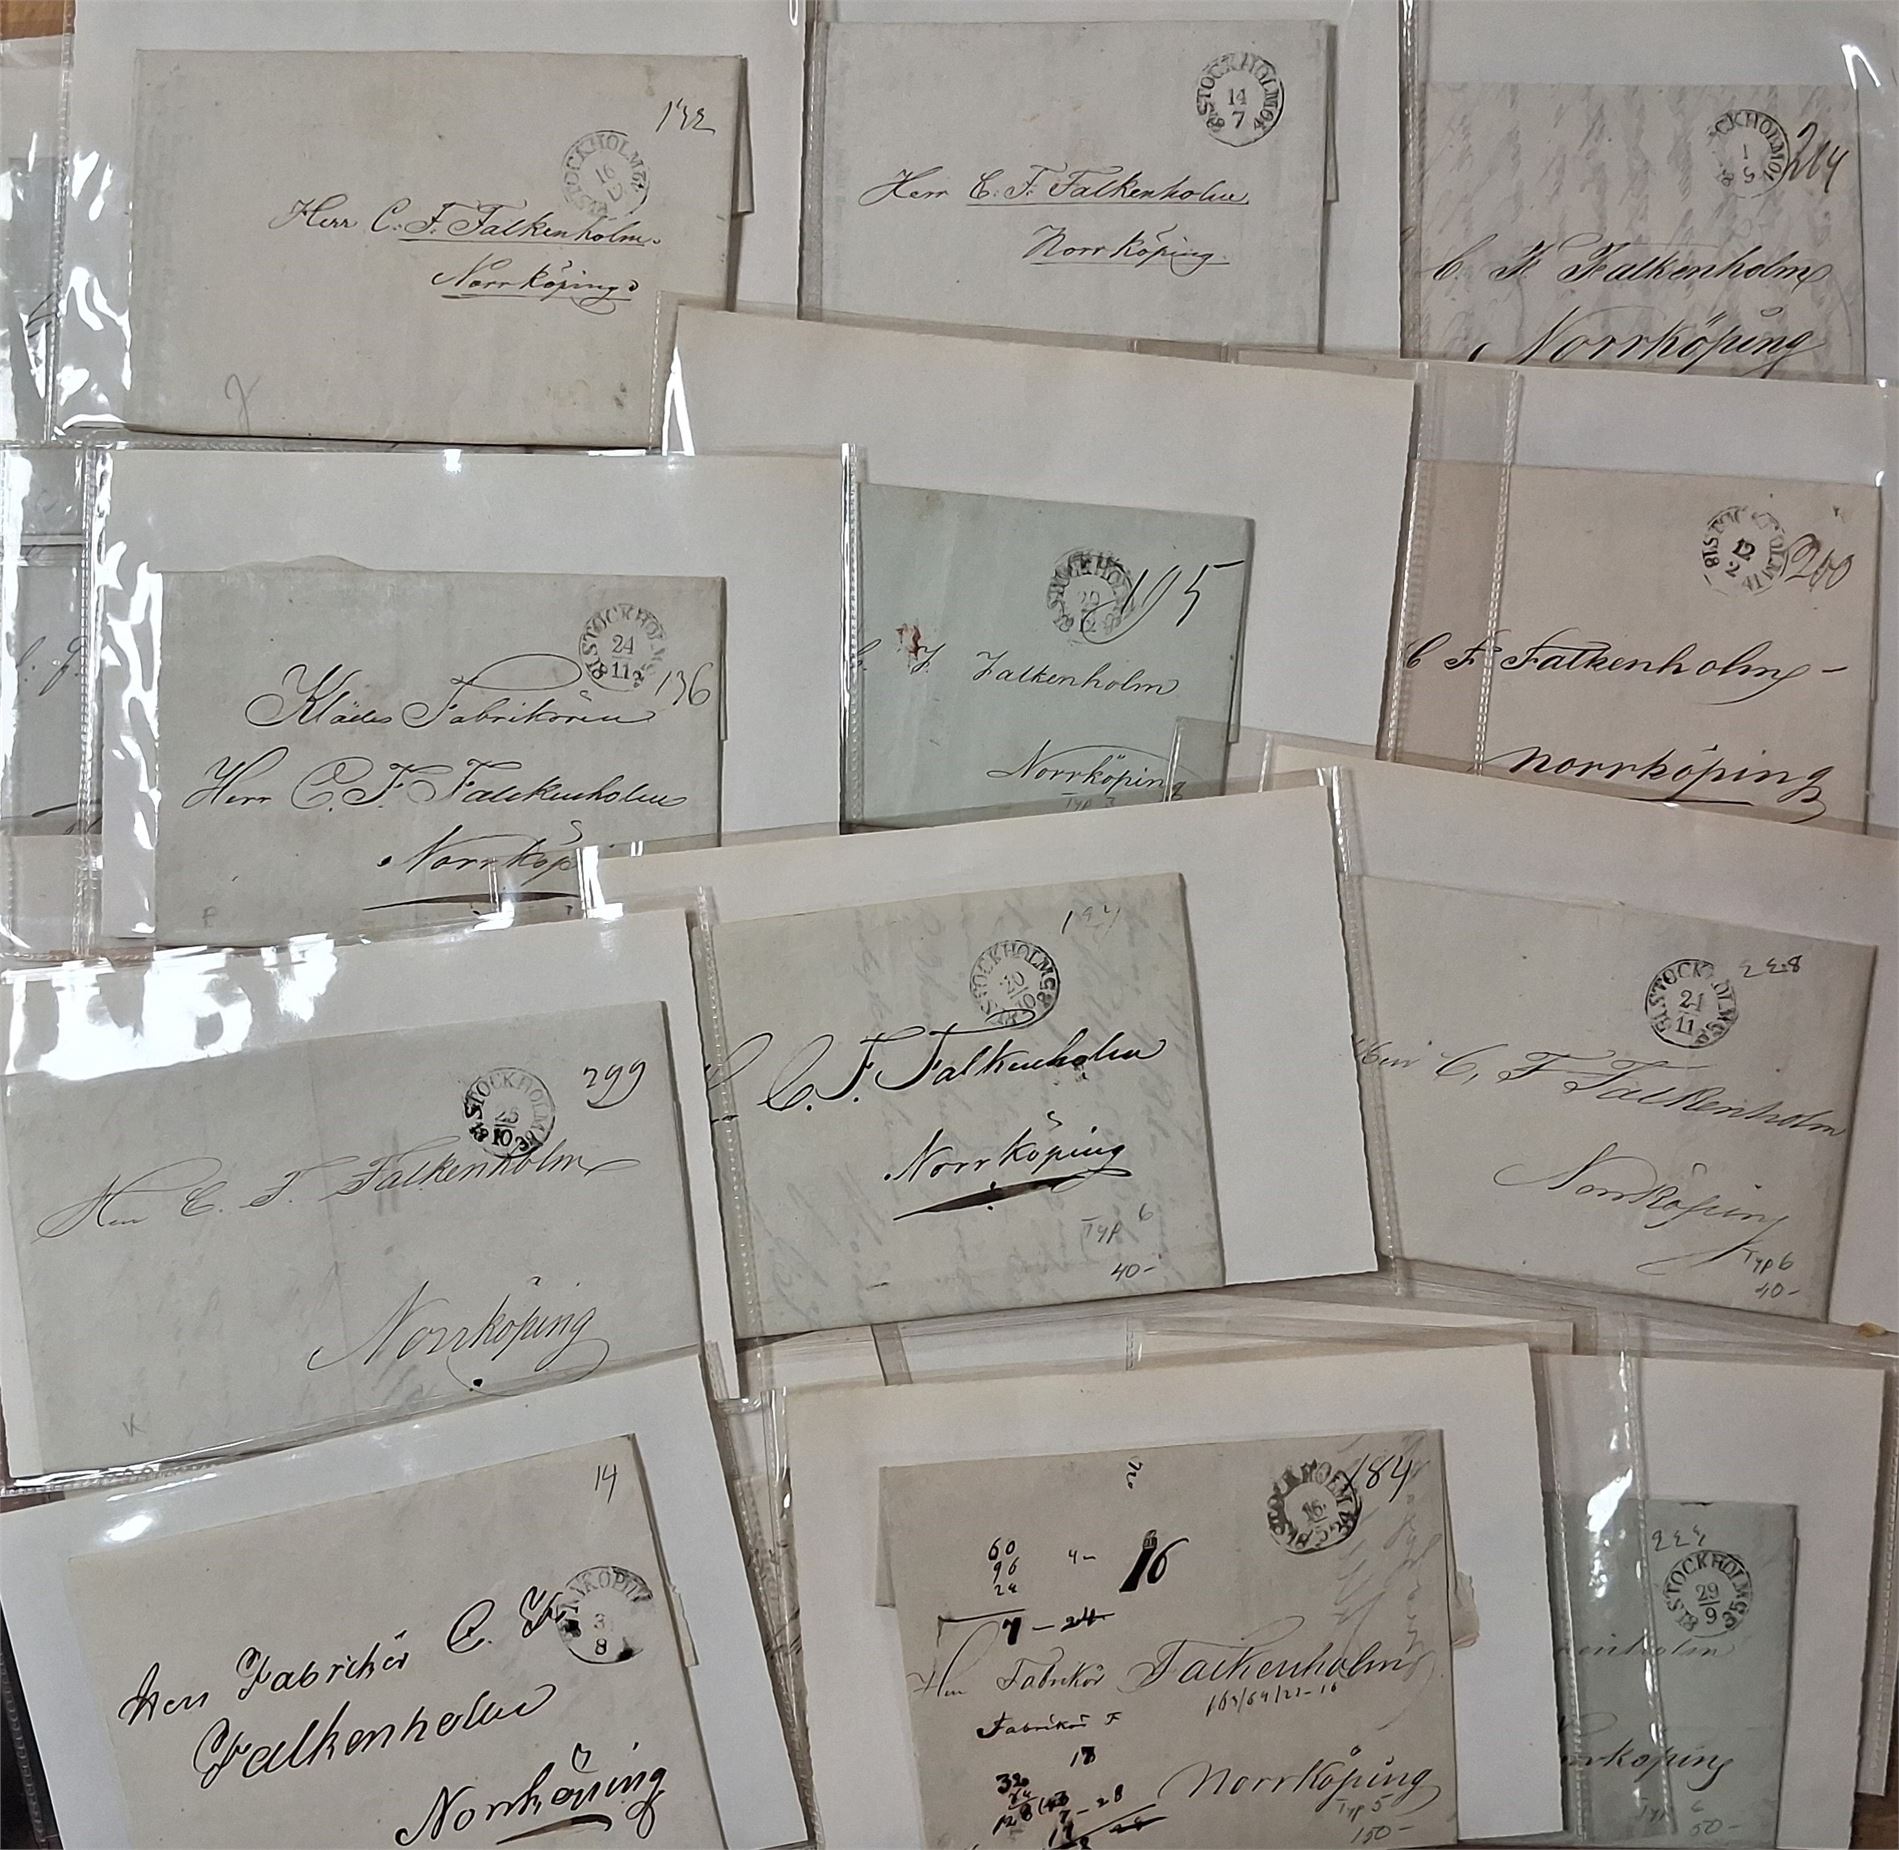 142
STOCKHOLM
16
12
Herr C. F. Falkenholm.
Norrköping
STOCKHOLM
14
7
Herr C. F. Falkenholm
Norrköping.
STOCKHOLM
1
5
204
C. F. Falkenholm
Norrköping
STOCKHOLM
24
11
136
Klädes Fabrikören
Herr C. F. Falkenholm
Norrköp
STOCKHOLM
12
105
C. F. Falkenholm
Norrköping
Typ 3
STOCKHOLM
12
2
200
C F Falkenholm
Norrköping
299
STOCKHOLM
10
Herr C. F. Falkenholm
Norrköping
K
STOCKHOLM
20
10
C. F. Falkenholm
Norrköping
Typ 6
40-
228
STOCKHOLM
21
11
Herr C. F Falkenholm
Norrköping
Typ 6
40-
14
LINKÖPING
3
8
Herr Fabrikör C. F.
Falkenholm
Norrköping
184
STOCKHOLM
16
60
96
24
16
7 - 24
Herr Fabrikör Falkenholm
Fabrikör F
18
32
Norrköping
Typ 5
150-
STOCKHOLM
29
9
enholm
rrköping
Typ 6
50-